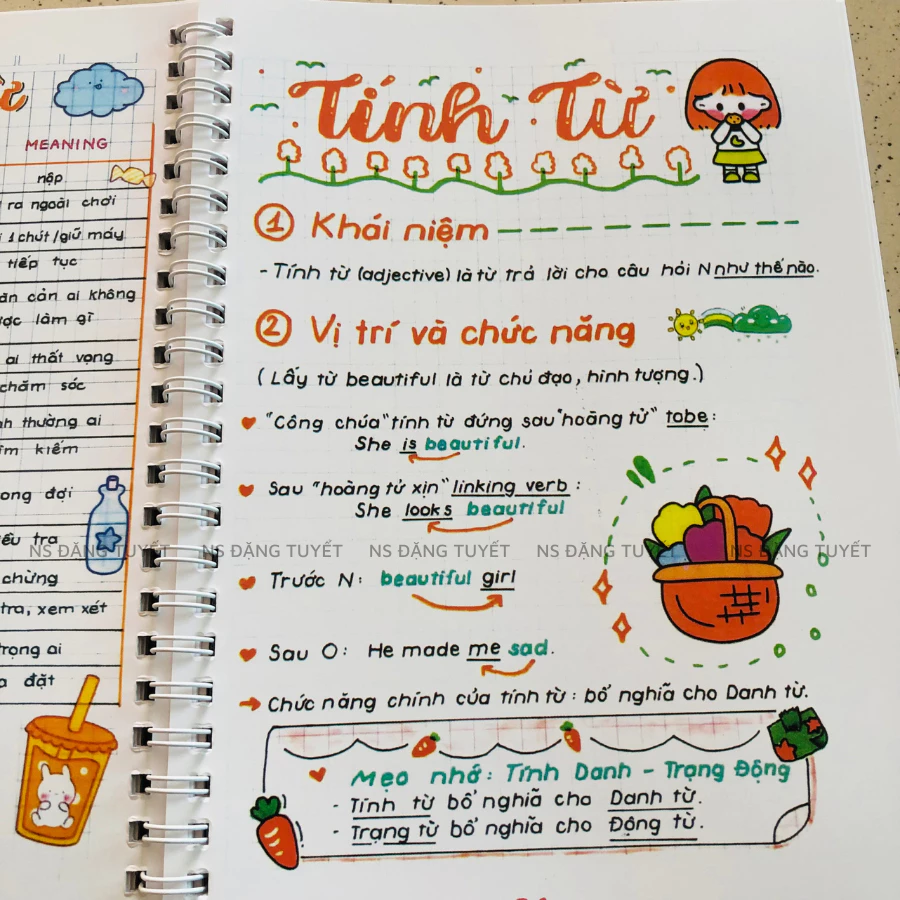 MEANING
nộp
ra ngoài chơi
1 chút /giữ máy
tiếp tục
cản ai không
làm gì
ai thất vọng
chăm sóc
thường ai
kiếm
đợi
tra
chừng
tra, xem xét
trọng ai
đặt
Tính Từ
1 Khái niệm
- Tính từ (adjective) là từ trả lời cho câu hỏi N như thế nào.
2 Vị trí và chức năng
( Lấy từ beautiful là từ chủ đạo, hình tượng.)
"Công chúa" tính từ đứng sau "hoãng tử" tobe:
She is beautiful.
Sau "hoàng tử xịn" linking verb :
She looks beautiful
NS ĐẶNG TUYẾT NS ĐẶNG TUYẾT NS ĐẶNG TUYẾT NS ĐẶNG TUYẾT NS ĐẶNG TUYẾT
Trước N: beautiful girl
Sau O: He made me sad.
→ Chức năng chính của tính từ : bổ nghĩa cho Danh từ.
Mẹo nhớ: Tính Danh - Trạng Động
- Tính từ bổ nghĩa cho Danh từ.
- Trạng từ bổ nghĩa cho Động từ.